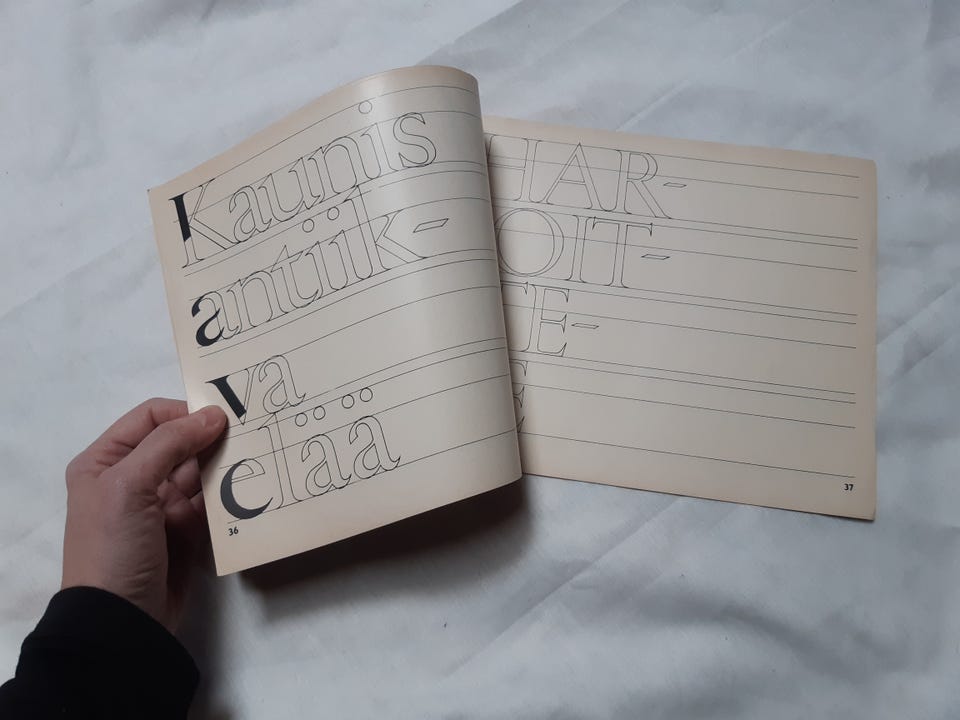 Kaunis
antiik-
va
elää
36
HAR-
OIT-
TE-
E
37